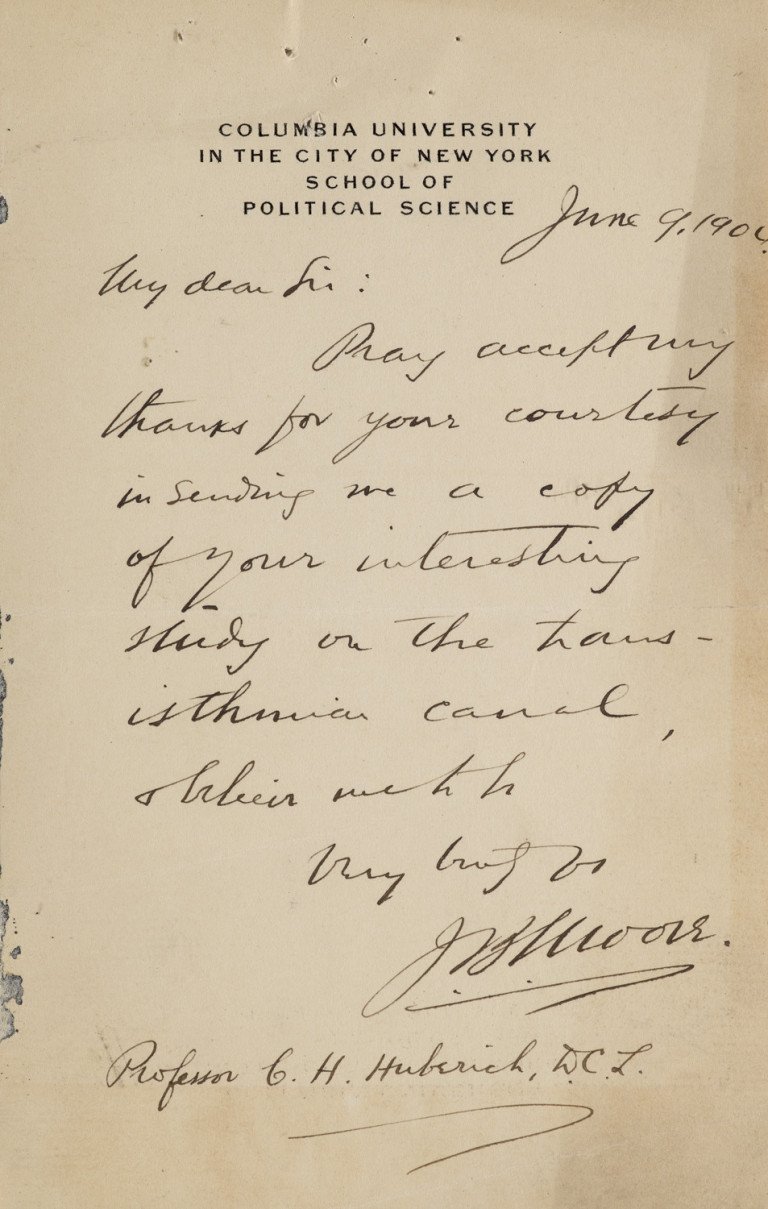 COLUMBIA UNIVERSITY
IN THE CITY OF NEW YORK
SCHOOL OF
POLITICAL SCIENCE
June 9, 190
My dear Sir:
Pray accept my
thanks for your courtesy
in sending me a copy
of your interesting
study on the trans-
isthmian canal,
& believe me to be
Very truly yrs
J. B. Moore.
Professor C. H. Huberich, D.C.L.